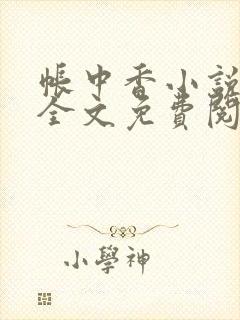 帳中香小說
全文免費閱
小學神